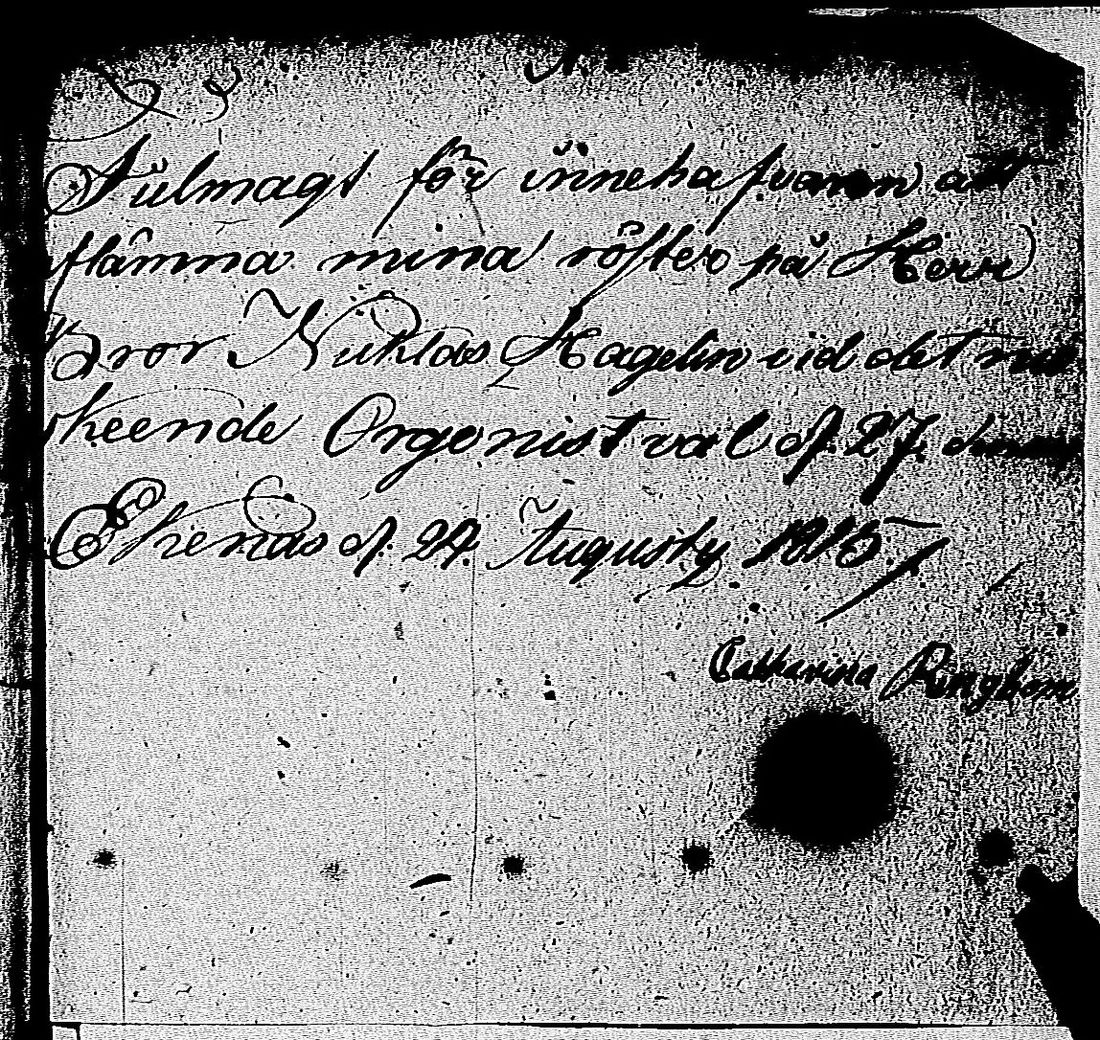 Fulmagt för innehafvaren att
stämma mina röster på Herr
Bror Nicklas Hagelin vid det nu
skeende Orgonist val d. 27. dennes
Ekenäs d. 24. Augusty. 1815.
Catharina Ringbom